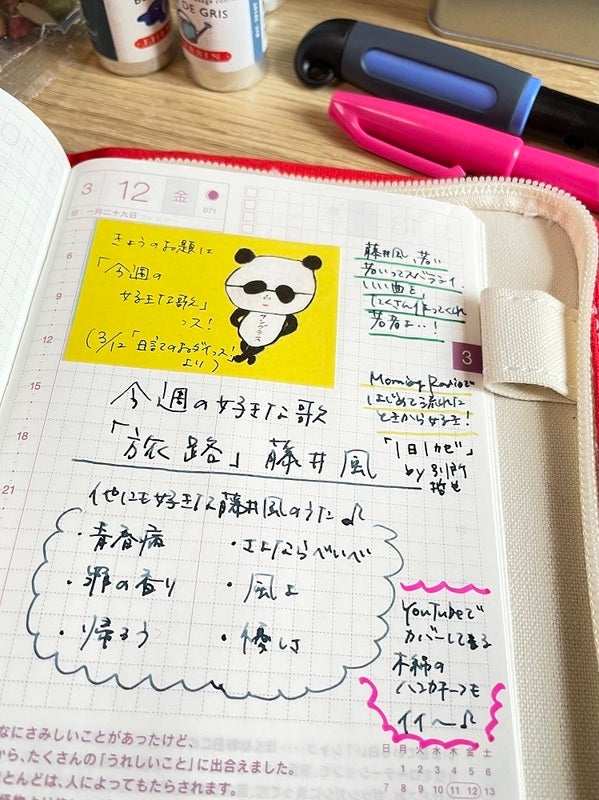 DE GRIS
3 12 金
071
一月二十九日
きょうのお題は
「今週の
好きな歌」
っス!
(3/12「日記でのおダイっス!」
より)
サングラス
藤井風、若い
若いってスバラシイ、
いい曲を
たくさん作ってくれ
若者よ…!
3
Morning Radioで
はじめて流れた
ときから好き!
「1日1カゼ」
by 別所
哲也
6
9
12
15
18
21
今週の好きな歌
「旅路」藤井 風
他にも好きな藤井風のうた♪
・青春病
・さよならべいべ
・罪の香り
・風よ
・帰ろう
・優しさ
YouTubeで
カバーしてる
木綿の
ハンカチーフも
イイ〜♪
なにさみしいことがあったけど、
から、たくさんの「うれしいこと」に出合えました。
とんどは、人によってもたらされます。
日 月 火 水 木 金 土
1 2 3 4 5 6
7 8 9 10 11 12 13